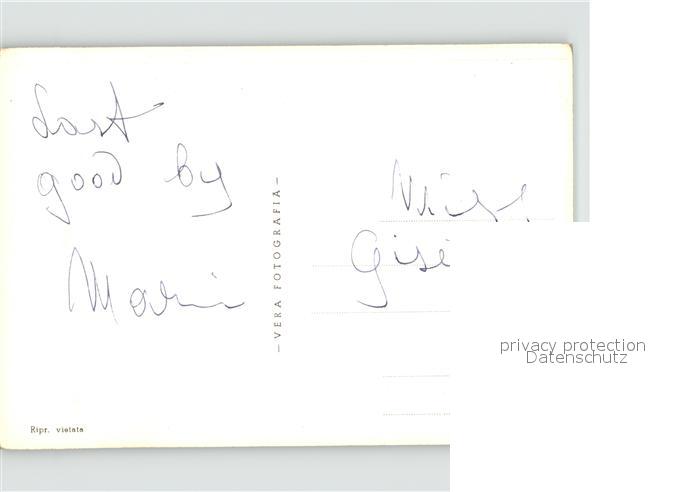 Last
good by
Mario
Gise
— VERA FOTOGRAFIA —
Ripr. vietata
privacy protection
Datenschutz